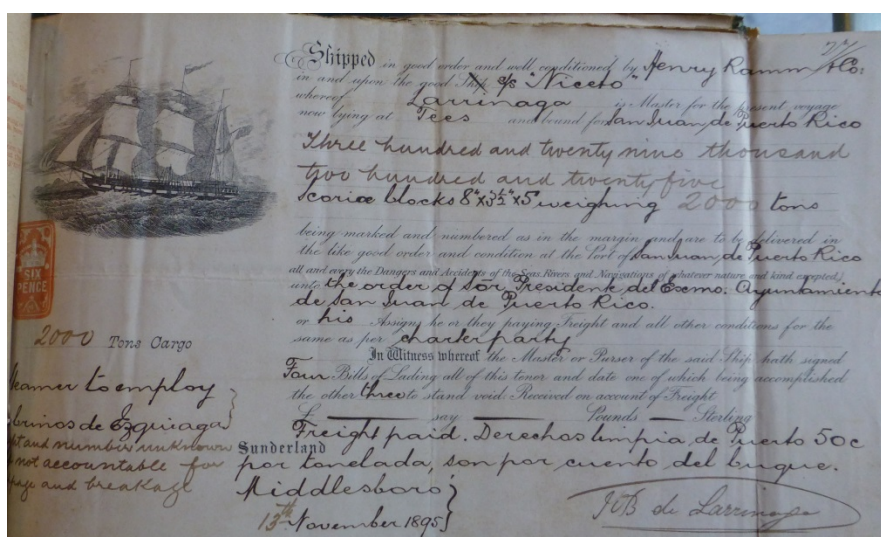 27
Shipped in good order and well conditioned by Henry Ramm & Co:
in and upon the good Ship s/s "Niceto"
whereof Larrinaga is Master for the present voyage
now lying at Tees and bound for San Juan, de Puerto Rico
Three hundred and twenty nine thousand
two hundred and twenty five
Scoriæ blocks 8"x3½"x5 weighing 2000 tons
being marked and numbered as in the margin and are to be delivered in
the like good order and condition at the Port of San Juan, de Puerto Rico
all and every the Dangers and Accidents of the Seas, Rivers and Navigations of whatever nature and kind excepted)
unto the order of Sor President del Exmo. Ayuntamiento
de San Juan de Puerto Rico.
or his Assigns, he or they paying Freight and all other conditions for the
same as per charter party
In Witness whereof the Master or Purser of the said Ship hath signed
Four Bills of Lading all of this tenor and date one of which being accomplished
the other three to stand void. Received on account of Freight
£ say Pounds Sterling
Freight paid. Derechos limpia de Puerto 50c
Sunderland
por tonelada, son por cuento del buque.
Middlesboro
13th November 1895
JB de Larrinaga
SIX
PENCE
2000 Tons Cargo
Steamer to employ
brinos de Ezquiaga
and number unknown
not accountable for
and breakage